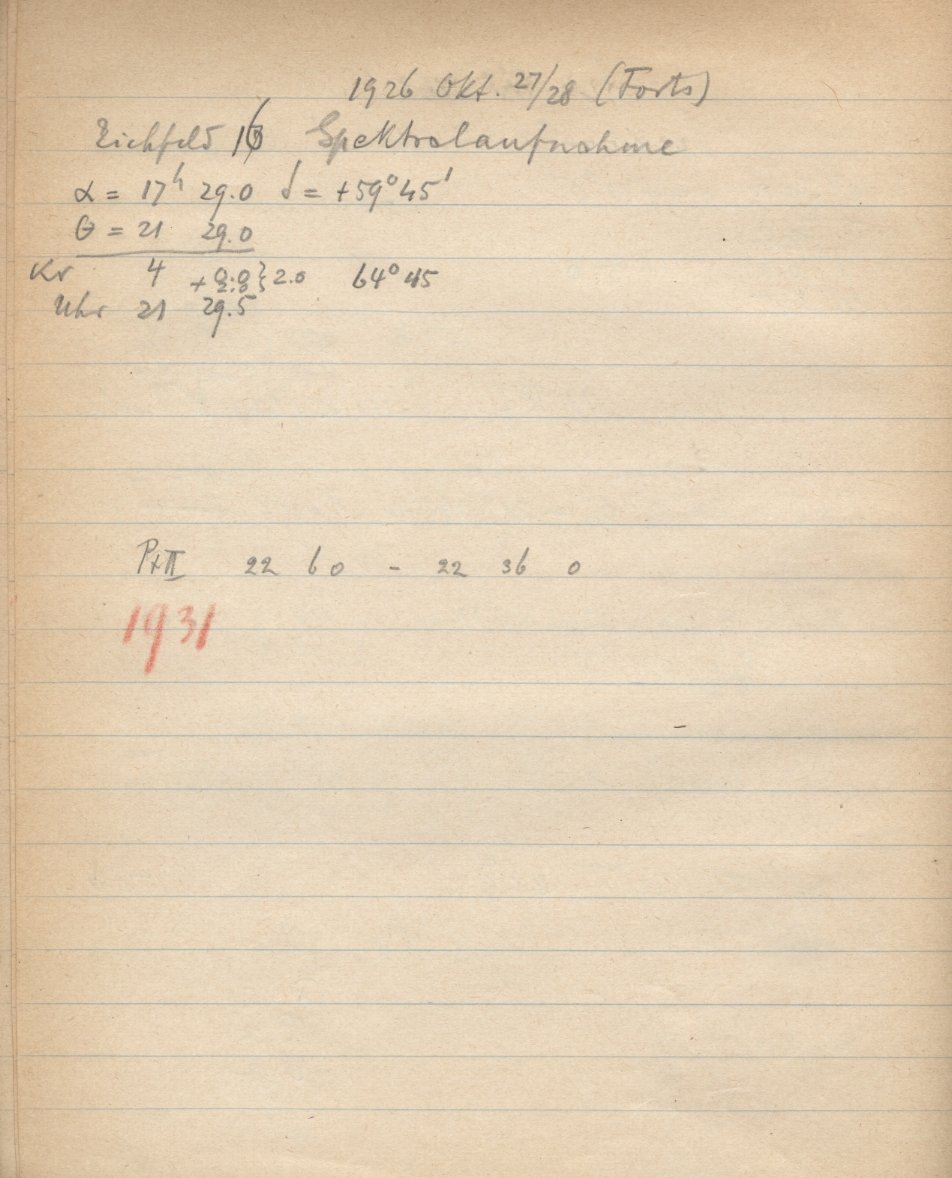 1926 Okt. 27/28 (Forts)
Eichfeld 16 Spektralaufnahme
α = 17ʰ 29.0 δ = +59°45'
θ = 21 29.0
Kr 4 + 0.0 } 2.0 64°45
2.0
Uhr 21 29.5
22 6 0 - 22 36 0
1931